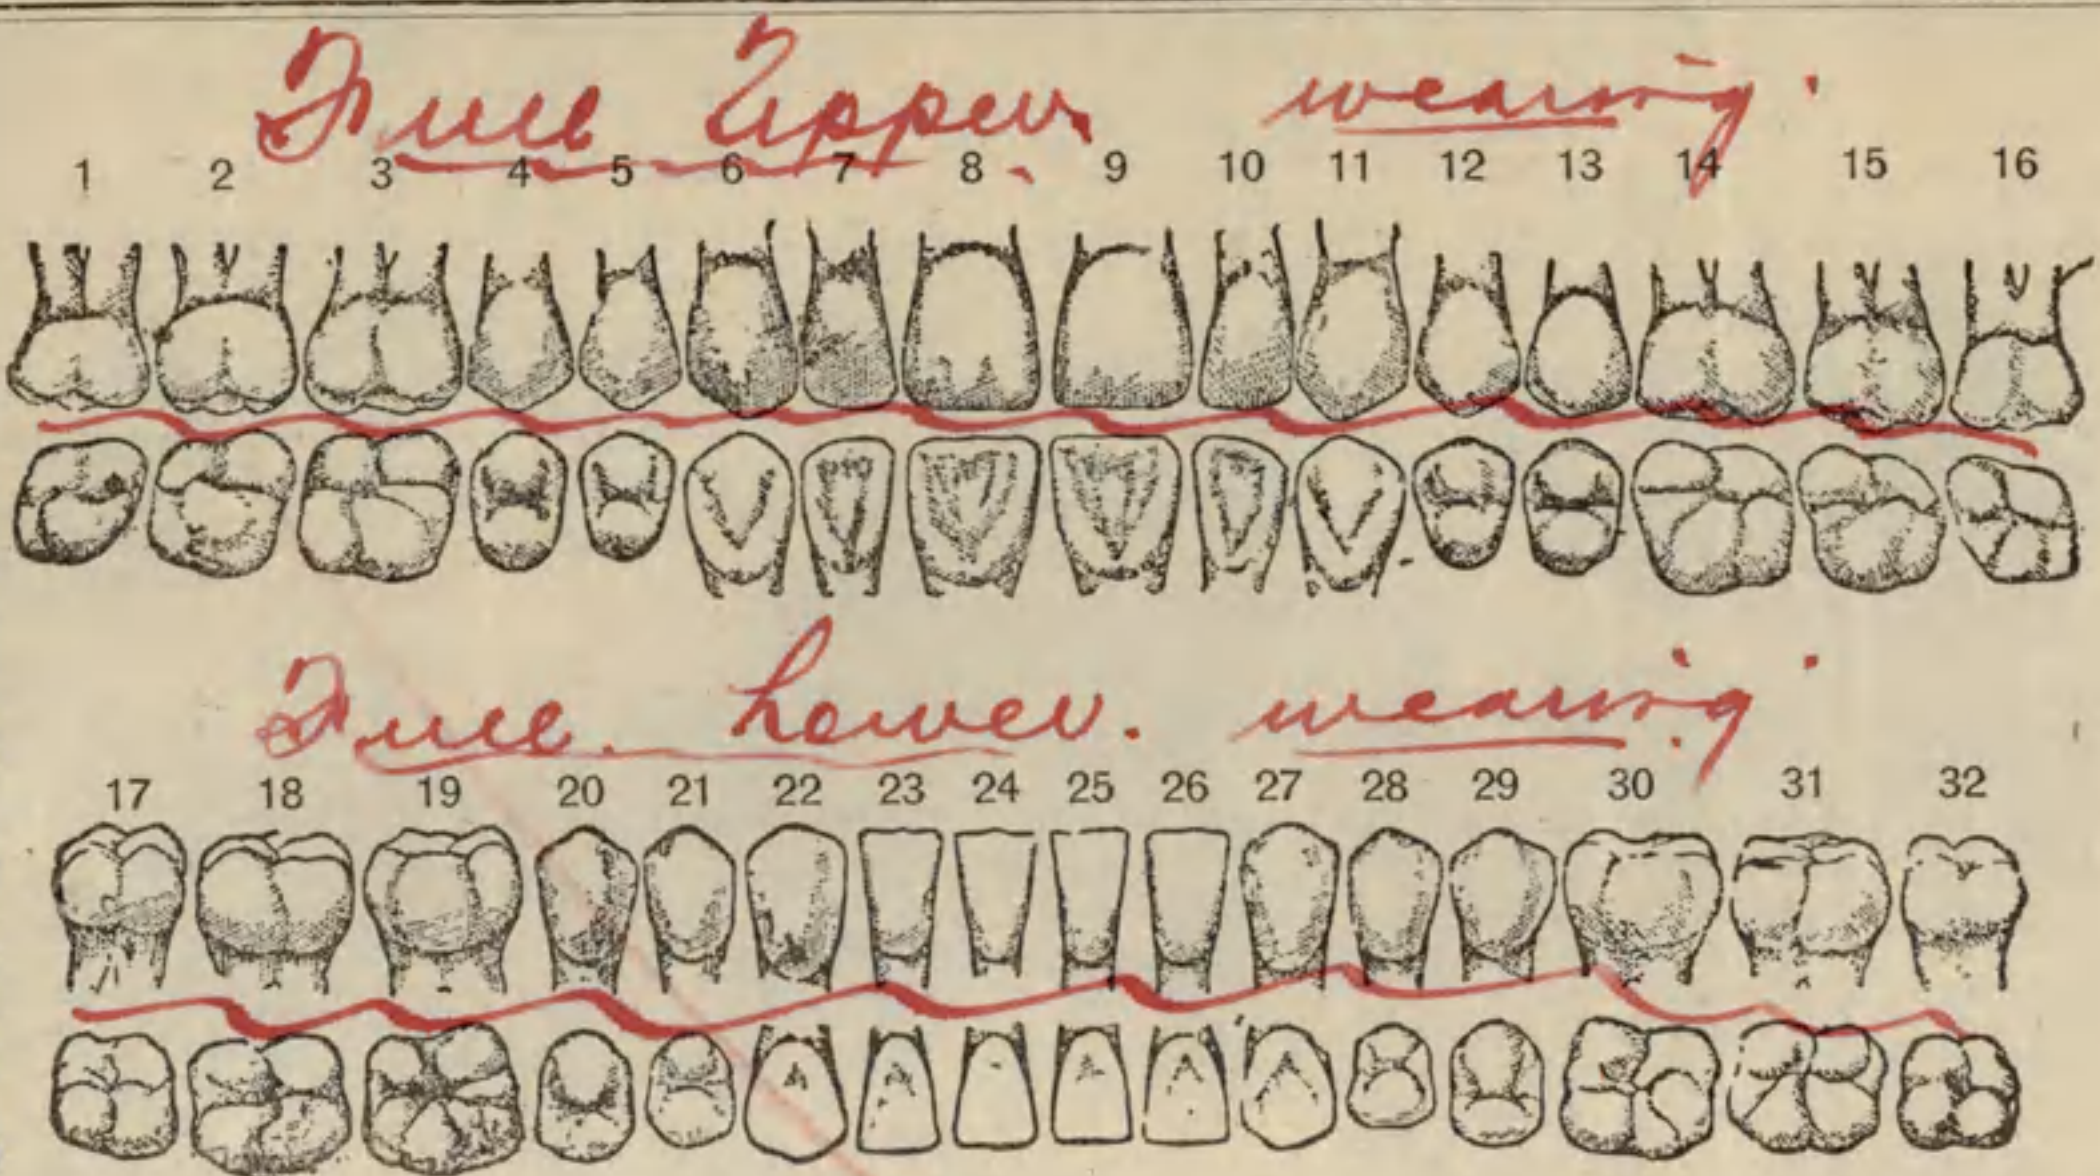 Full Upper. wearing.
1 2 3 4 5 6 7 8 9 10 11 12 13 14 15 16
Full Lower. wearing.
17 18 19 20 21 22 23 24 25 26 27 28 29 30 31 32